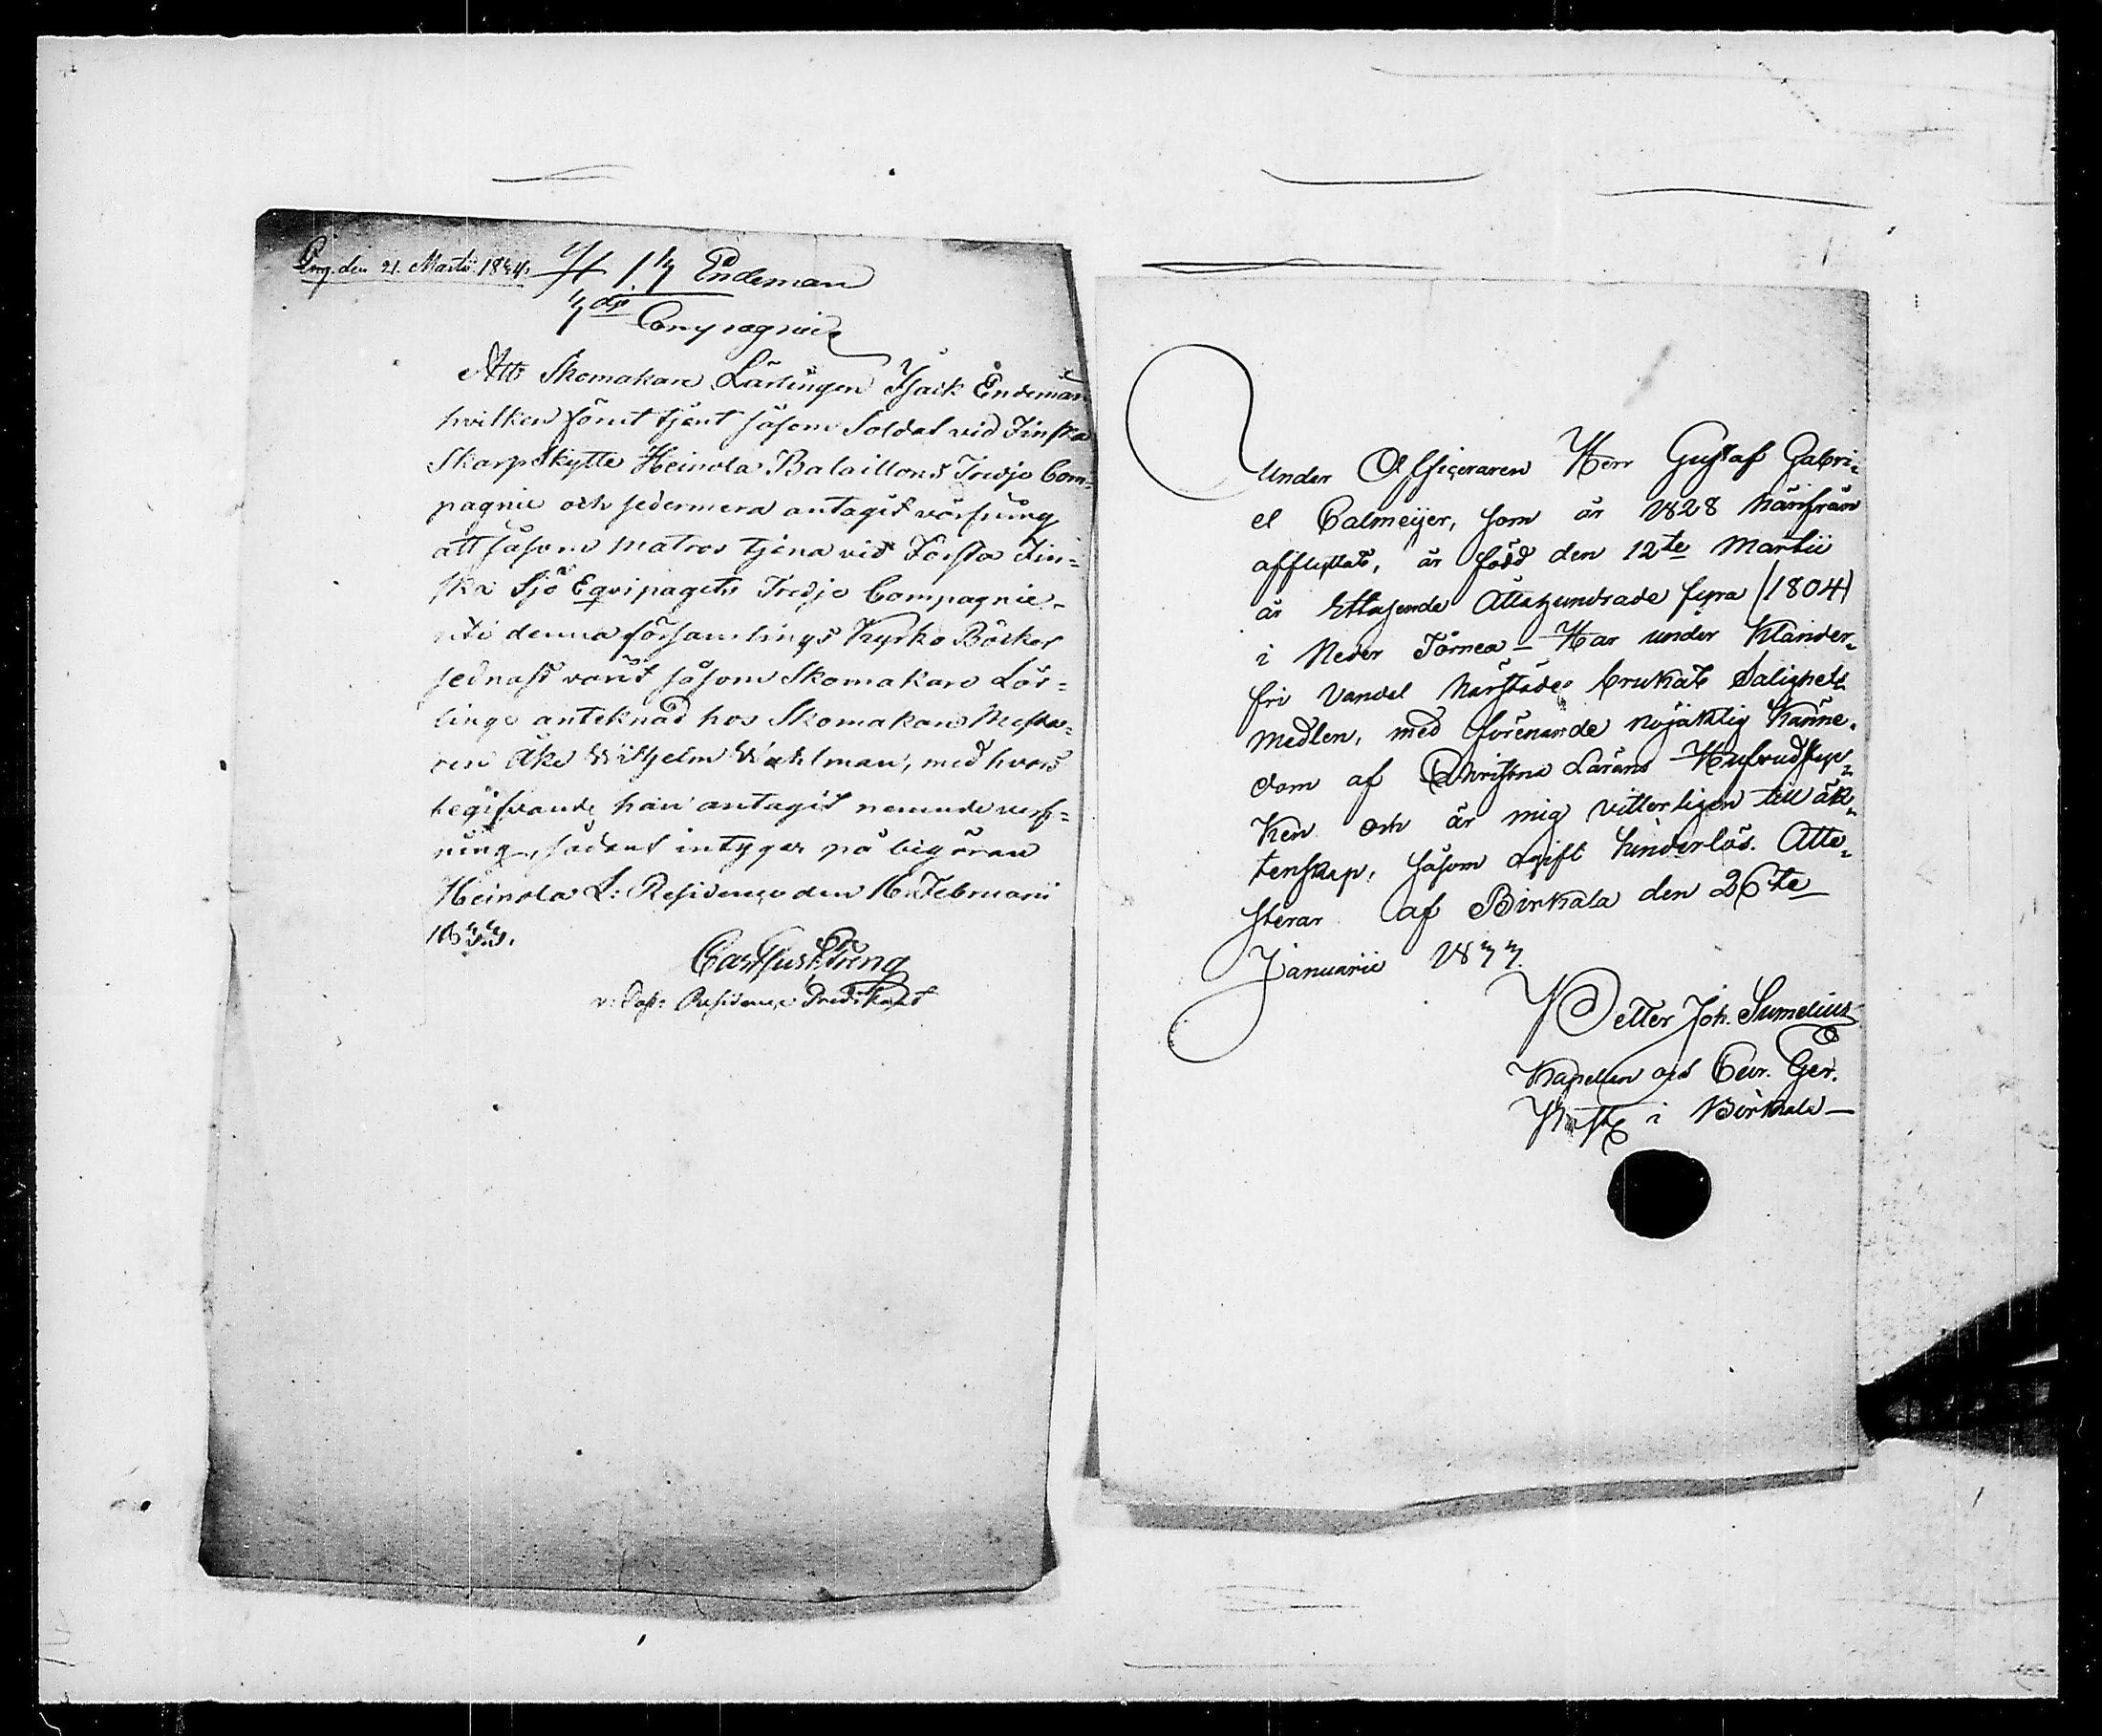 Ing. den 21. Martii 1834.
Endeman
3die Compagnie
Att Skomakare Lärlingen Isack Endeman
hvilken förut tjent såsom Soldat vid Finska
Skarpskytte Heinola Bataillons Tredje Com-
pagnie och sedermera antagit värfning
att såsom Matros tjena vid Första Fin-
ska Sjö Equipagets Tredje Compagnie,
uti denna församlings Kyrko Böcker
sednast varit såsom Skomakare Lär-
linge antecknad hos Skomakare Mesta-
ren Åke Wilhelm Wahlman, med hvars
begifvande han antagit nemnde verf-
ning, sådant intygar på begäran
Heinola L: Residence den 16 Februarii
1833.
Carl Gust. Streng
Residence Predikant
Under Officeraren Herr Gustaf Gabri-
el Calmeijer, som år 1828 härifrån
afflyttat, är född den 12te Martii
år Ettusende Åttahundrade fyra (1804)
i Neder Torneå – Har under klander-
fri vandel härstädes brukat Salighets
medlen, med förenande nöjaktig känne-
dom af Christna Lärans Hufvudstyc-
ken och är mig vitterligen till äk-
tenskap, såsom ogift hinderlös. Atte-
sterar af Birkala den 26te
Januarii 1833.
Petter Joh. Sumelius
Kapellan och Cur. Ger.
i Birkala –